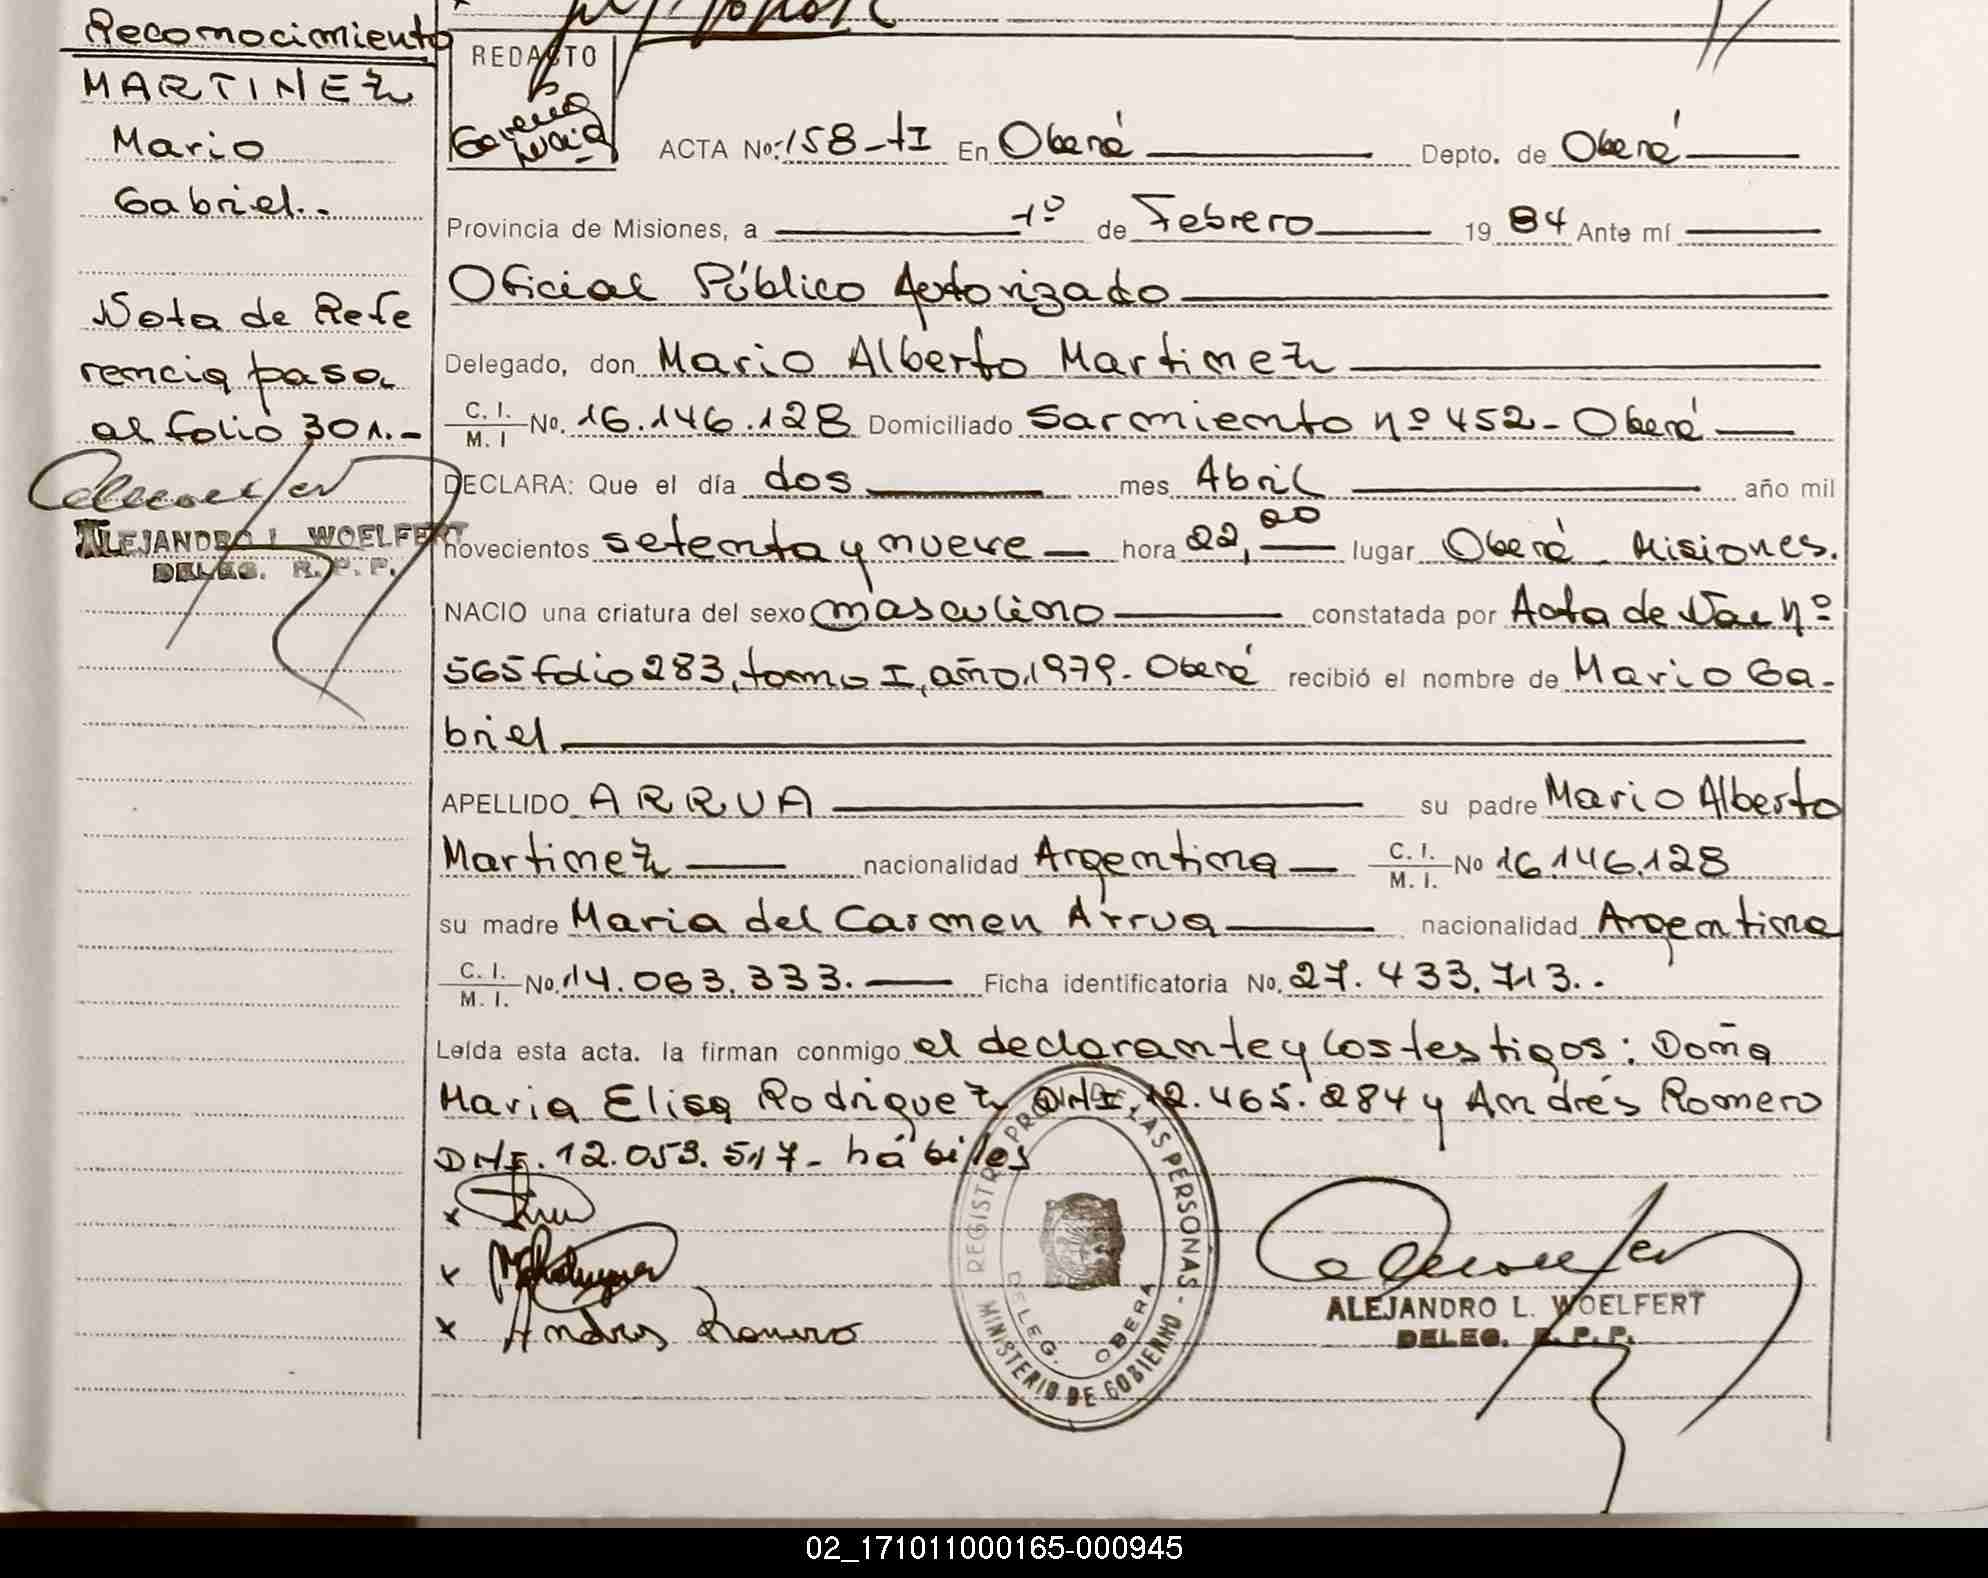 Reconocimiento
MARTINEZ
Mario
Gabriel.-
Nota de Refe
rencia pasa
al folio 301.-
ALEJANDRO L. WOELFERT
DELEG. R. P. P.
REDACTO
ACTA No: 158-tI En Oberá Depto. de Oberá
Provincia de Misiones, a 1º de Febrero 19 84 Ante mí
Oficial Público Autorizado
Delegado, don Mario Alberto Martinez
C. I. / M. I No. 16.146.128 Domiciliado Sarmiento nº 452 - Oberá
DECLARA: Que el día dos mes Abril año mil
novecientos setenta y nueve hora 22,00 lugar Oberá - Misiones.
NACIO una criatura del sexo masculino constatada por Acta de Nac nº
565 folio 283, tomo I, año, 1979. Oberá recibió el nombre de Mario Ga-
briel
APELLIDO ARRUA su padre Mario Alberto
Martinez nacionalidad Argentina C. I. / M. I. No 16.146.128
su madre Maria del Carmen Arrua nacionalidad Argentina
C. I. / M. I. No. 14.063.333. Ficha identificatoria No. 27.433.713..
Leída esta acta. la firman conmigo el declarante y los testigos: Doña
Maria Elisa Rodriguez DNI 12.465.284 y Andrés Romero
DNI. 12.053.517 - hábiles
Andres Romero
REGISTRO PROV. DE LAS PERSONAS - MINISTERIO DE GOBIERNO
DELEG. OBERA
ALEJANDRO L. WOELFERT
DELEG. R. P. P.
02_171011000165-000945